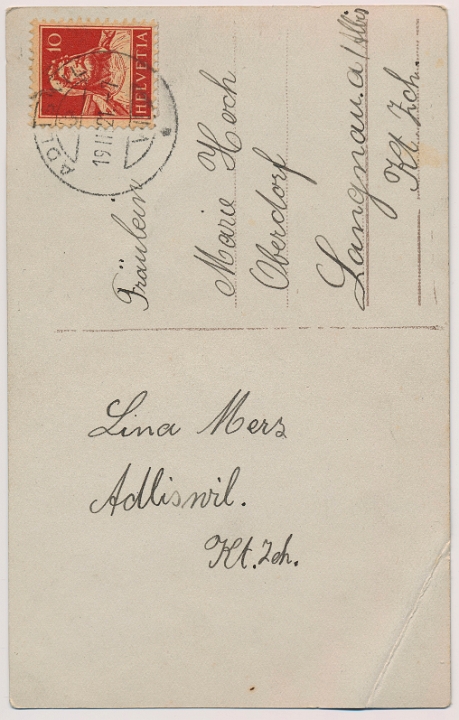 10
HELVETIA
Fräulein
Marie Hoch
Oberdorf
Langnau.a/Albis
Kt. Zch.
Lina Merz
Adliswil.
Kt. Zch.